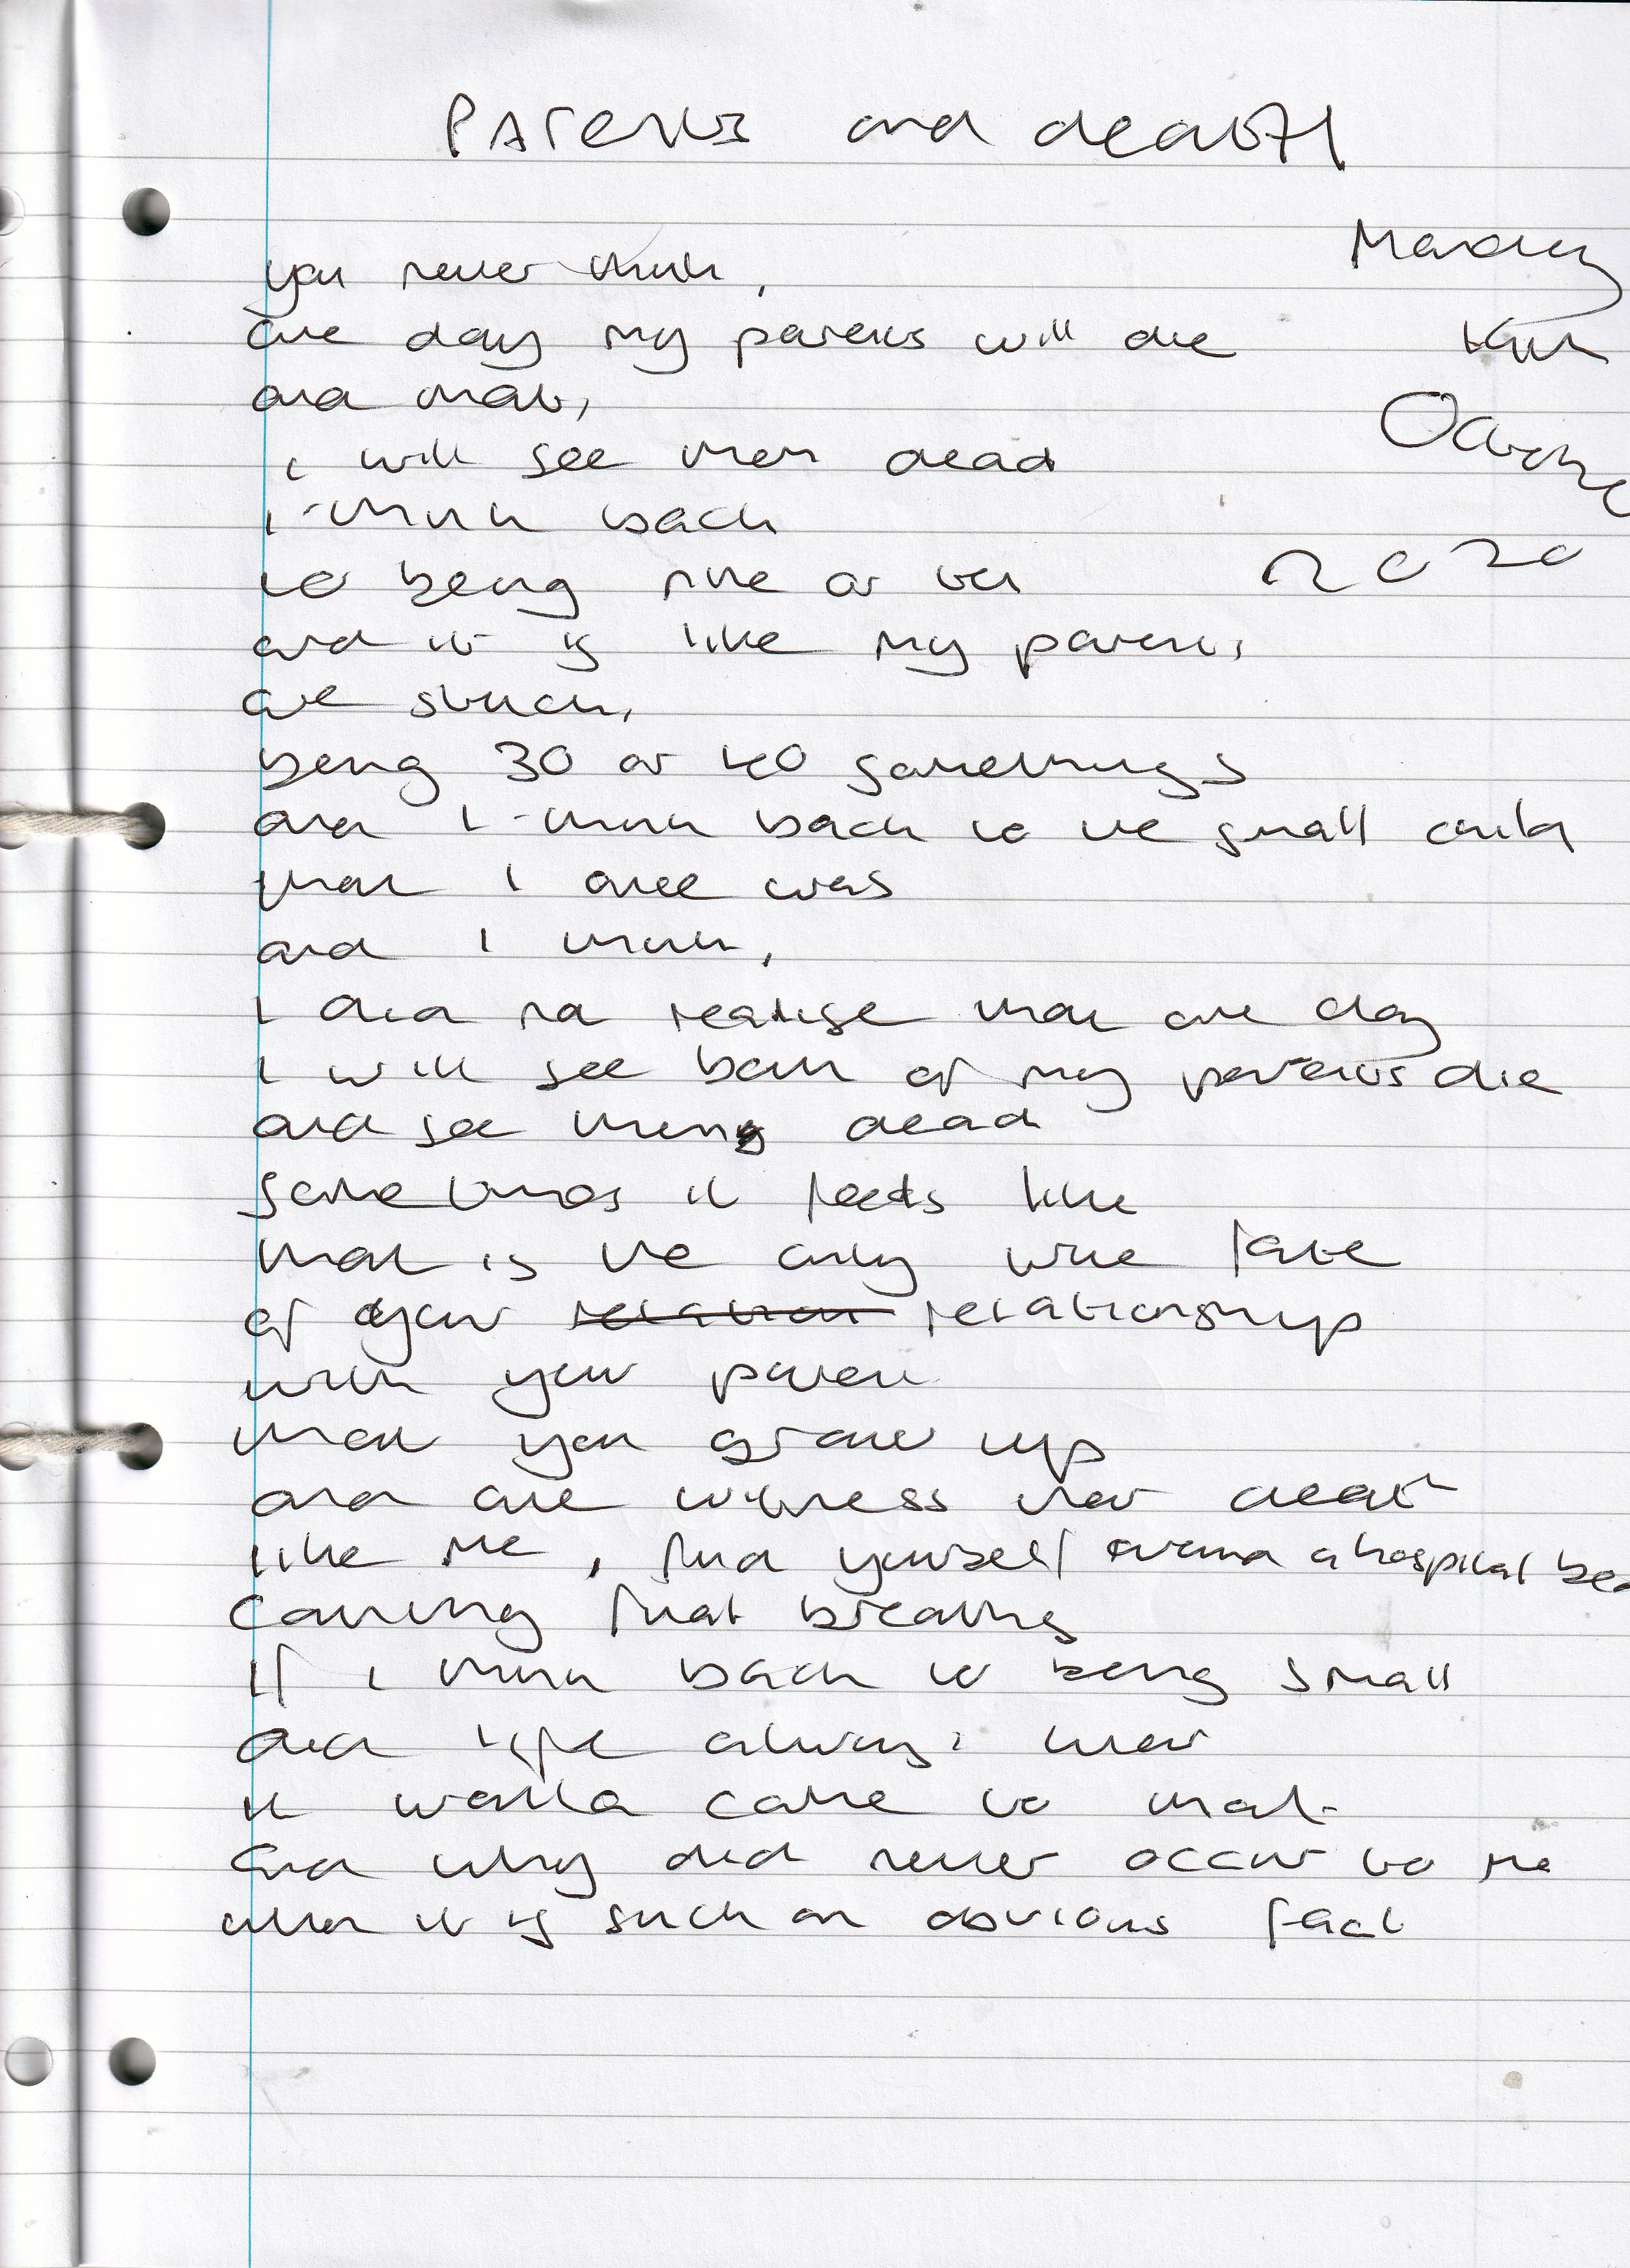 Parents and death
Monday
you never think,
one day my parents will die
and that,
October
i will see them dead
i think back
2020
to being nine or ten
and it is like my parents
are stuck,
being 30 or 40 somethings
and I think back to the small child
that I once was
and I think,
I did not realise that one day
I will see both of my parents die
and see them dead
sometimes it feels like
that is the only true fate
of your relation relationship
with your parent
that you grow up
and one witness their death
like me, find yourself around a hospital bed
counting final breaths
If i think back to being small
and life always knew
it would come to that
and why did never occur to me
when it is such an obvious fact